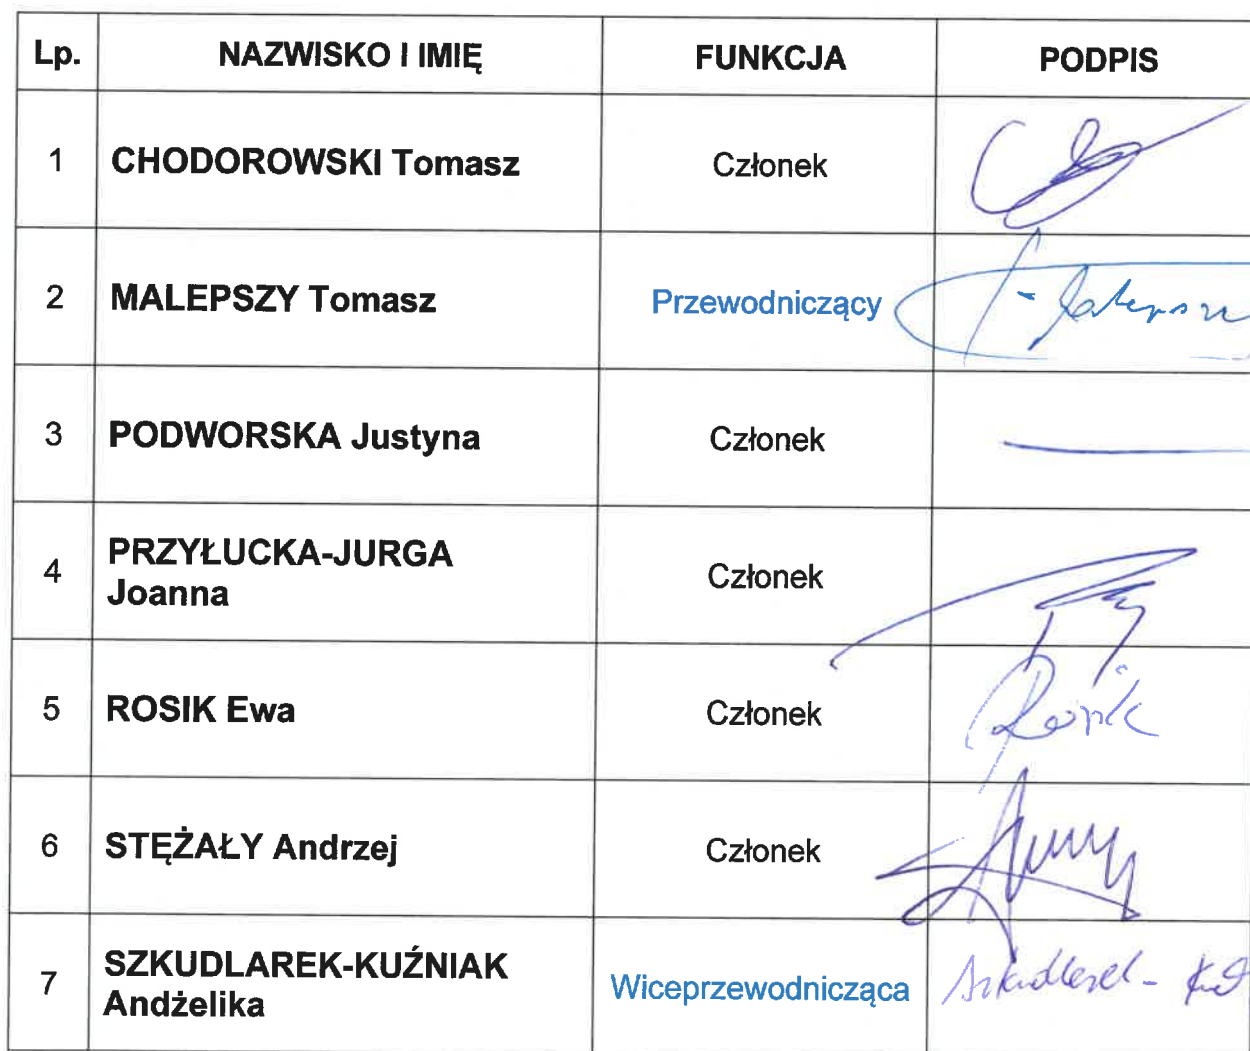 Lp. NAZWISKO I IMIĘ FUNKCJA PODPIS
1 CHODOROWSKI Tomasz Członek
2 MALEPSZY Tomasz Przewodniczący
3 PODWORSKA Justyna Członek
4 PRZYŁUCKA-JURGA
Joanna Członek
5 ROSIK Ewa Członek Rosik
6 STĘŻAŁY Andrzej Członek
7 SZKUDLAREK-KUŹNIAK
Andżelika Wiceprzewodnicząca